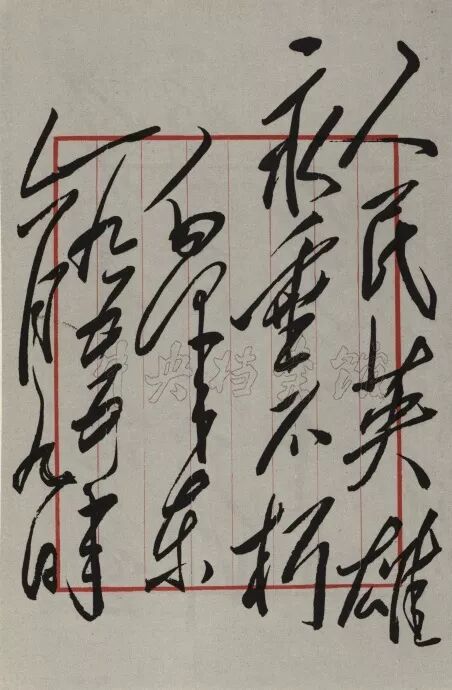 人民英雄
永垂不朽
毛泽东
一九五五年
六月九日
中央档案馆